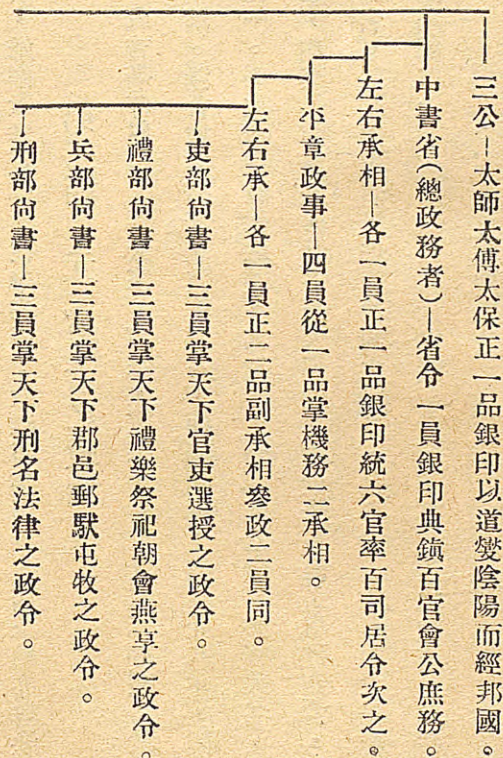 三公—太師太傅太保正一品銀印以道燮陰陽而經邦國。
中書省(總政務者)—省令一員銀印典鎮百官會公庶務。
左右承相—各一員正一品銀印統六官率百司居令次之。
平章政事—四員從一品掌機務二承相。
左右承—各一員正二品副承相參政二員同。
吏部尙書—三員掌天下官吏選授之政令。
禮部尙書—三員掌天下禮樂祭祀朝會燕享之政令。
兵部尙書—三員掌天下郡邑郵馱屯牧之政令。
刑部尙書—三員掌天下刑名法律之政令。